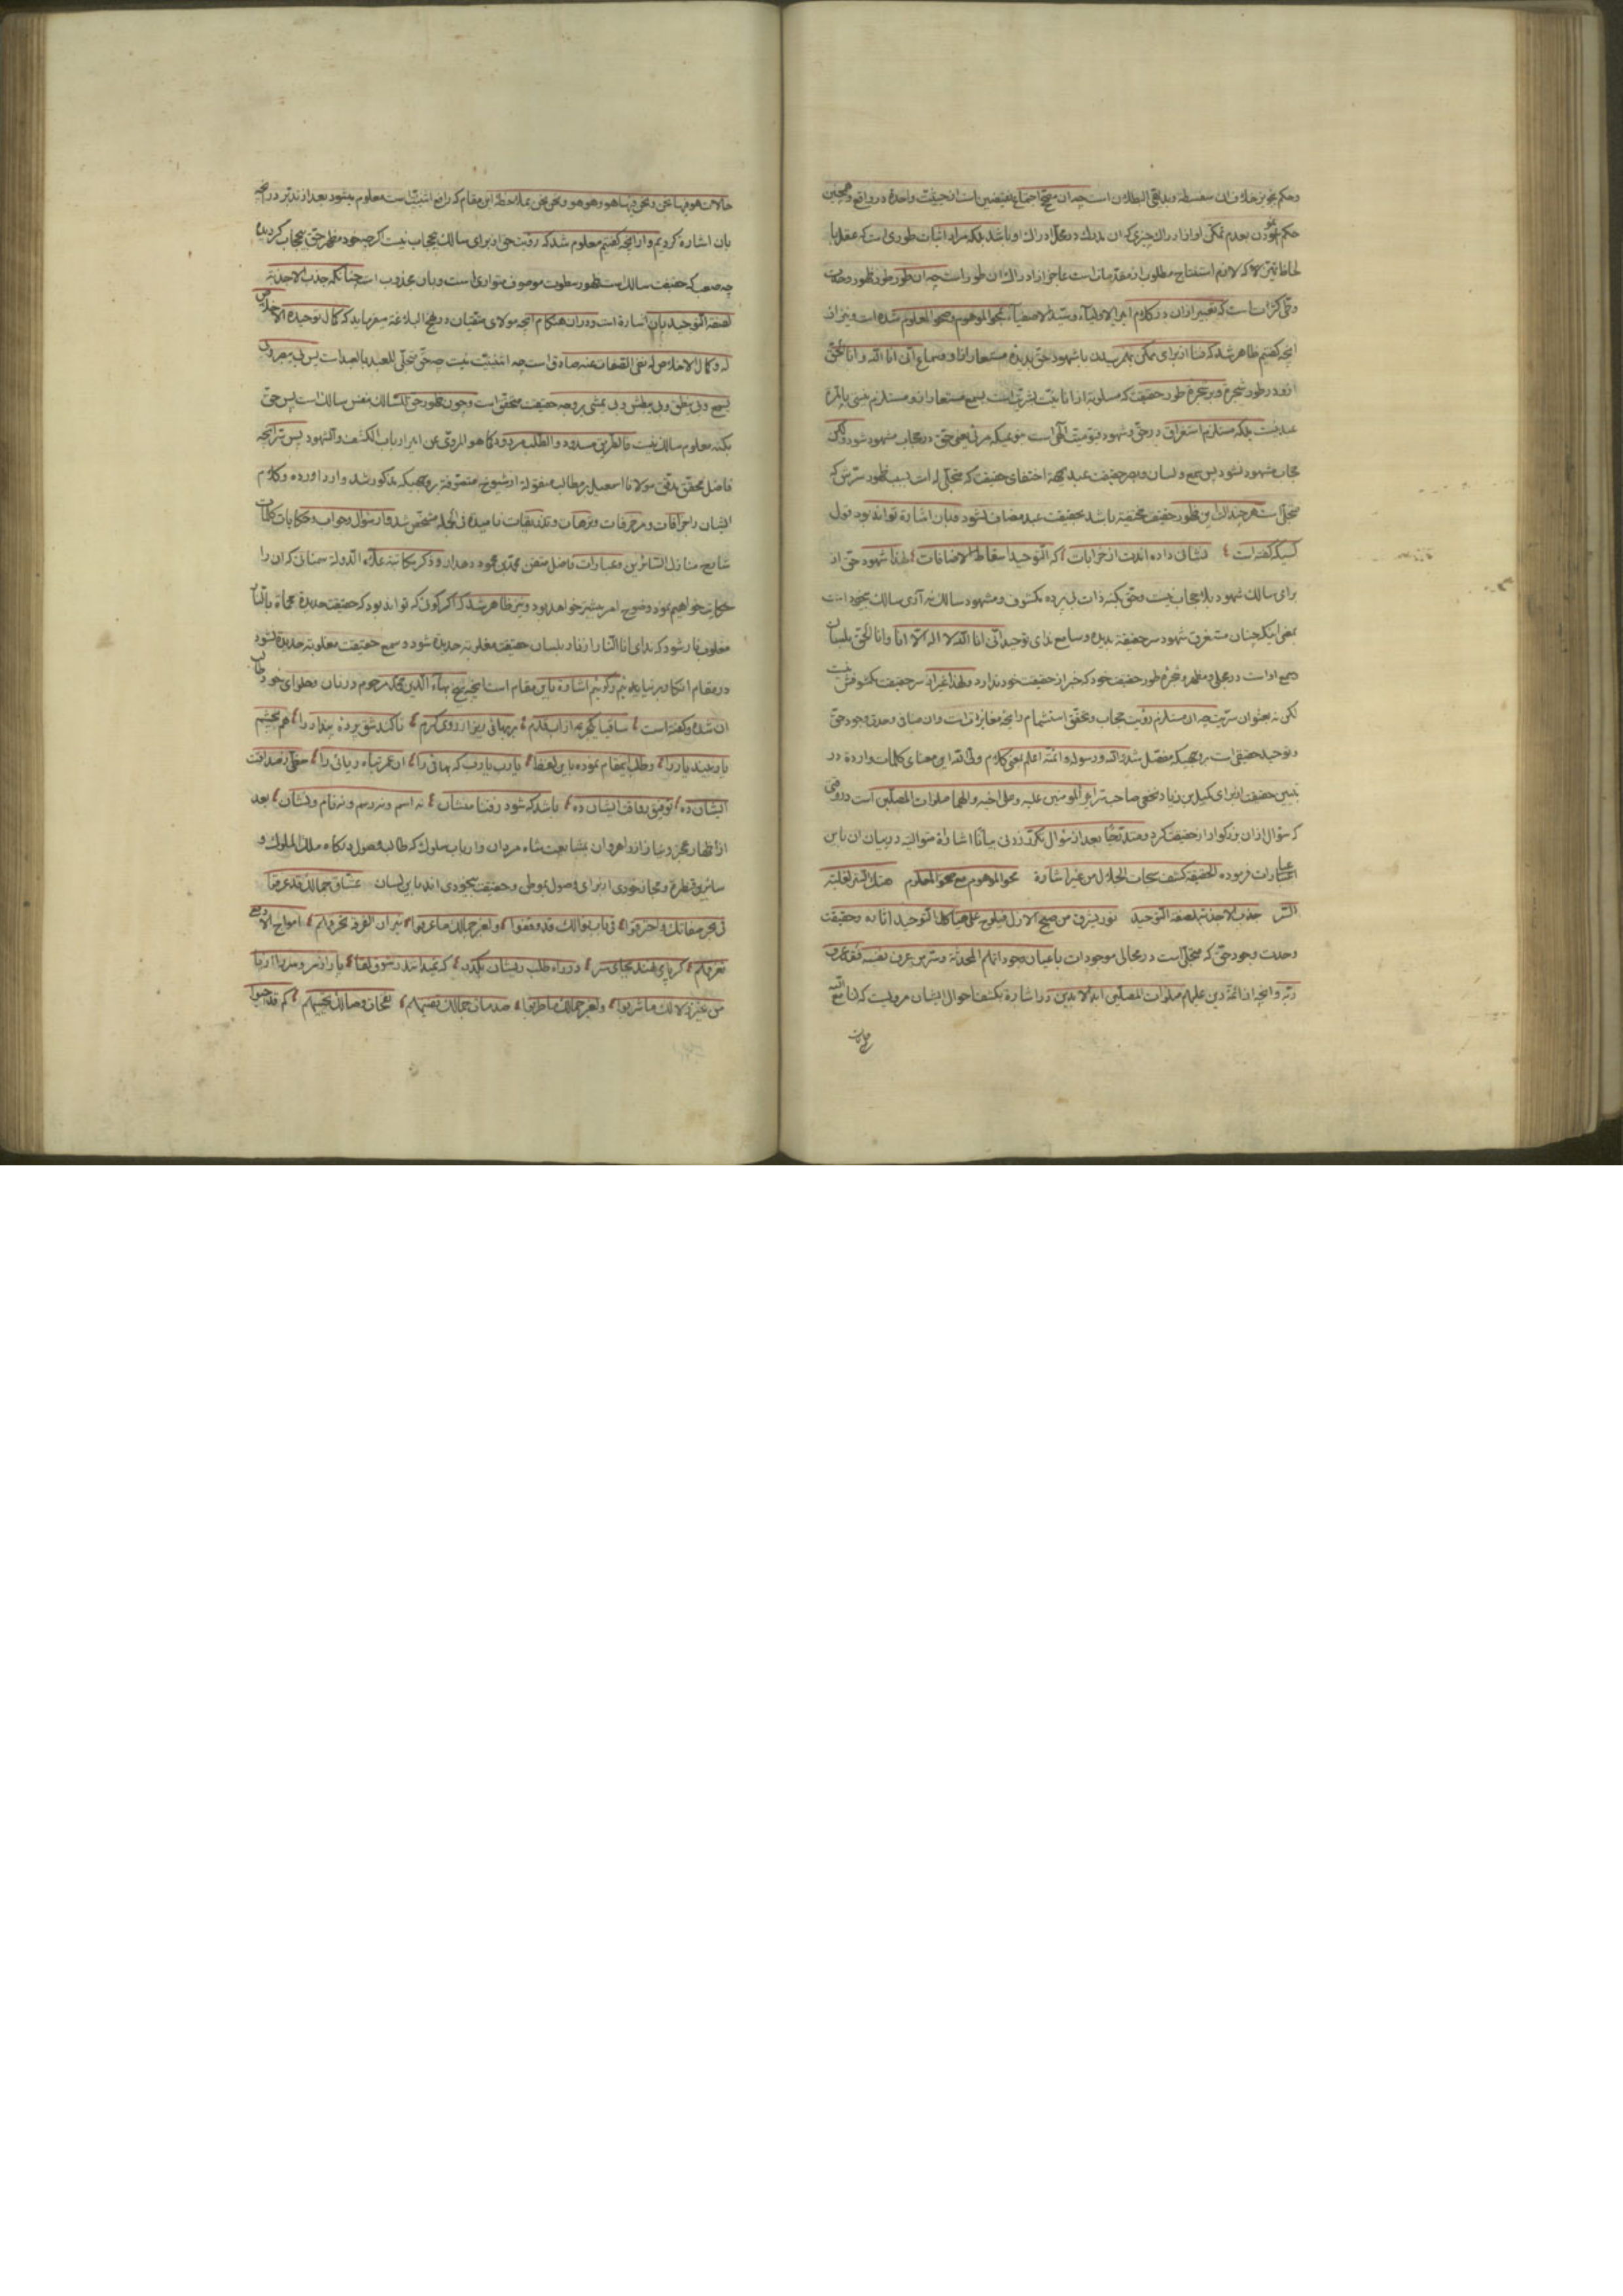 وحکم بتجویز خلاف ان سفسطه وبدیهی البطلان است چه ان مصحح اجتماع نقیضین است از حیثیت واحدة در واقع وهمچنین
حکم نمودن بعدم تمکن او از ادراک چیزی که ان مدرک در محل ادراک او باشد بلکه مراد اثبات طوری است که عقل با
لازم استفتاح مطلوب از مقدمات است عاجز از ادراک ان طور است چه ان طور طور ظهور وحدت
وفی کثرات است که تعبیر از ان در کلام امیر الاولیاء وسید الاصفیاء بمحو الموهوم وصحو المعلوم شده است ونیز از
انچه گفتیم ظاهر شد که فنا از برای ممکن بهم رسیدن با شهود حق بدیده مستعار از او وسماع انی انا الله وانا الحق
از او در طور شجره وبر شجره طور حقیقت که مسلوبة از انانیت بشریت است بسمع مستعار از او مستلزم عینی بالمرة
عبد نیست بلکه مستلزم استغراق در حق وشهود قیومیت الهی است بنوعیکه مرئی یعنی حق در حجاب مشهود شود ولکن
حجاب مشهود نشود پس سمع ولسان وبصر حقیقت عبد بجهة اختفای حقیقت که متجلی له است بسبب ظهور سرش که
متجلی است هر چند در این ظهور حقیقت مختفیة باشد بحقیقت عبد مضاف نشود وبان اشارة تواند بود قول
کسیکه گفته است نشانی داده اندت از خرابات که التوحید اسقاط الاضافات لهذا شهود حق از
برای سالک شهود بلا حجاب نیست وحق بکنه ذات بی پرده مکشوف ومشهود سالک نه آری سالک بیخود است
بمعنی اینکه چنان مستغرق شهود سر حقیقة بدیده وسامع ندای توحید انی انا الله لا اله الا انا وانا الحق بلسان
وسمع او است در مجلی ومظهر وشجره طور حقیقت خود که خبر از حقیقت خود ندارد ولهذا غیر از سر حقیقت مکشوفش نیست
لکن نه بعنوان سریت چه ان مستلزم رؤیت حجاب وتحقق استشمام رایحه مغایرت است وان منافی وحدت وجود حق
وتوحید حقیقی است بروجهیکه مفصل شد والله ورسوله وائمته اعلم بمعنی کلام ولی الله این معنای کلمات واردة در
تبیین حقیقت از برای کمیل بن زیاد نخعی صاحب سر امیر المومنین علیه وعلی اخیه والهما صلوات المصلین است در وقتی
که سؤال از ان بزرگوار از حقیقت کرد بعد از سؤال زدنی بیانا اشارة متوالیة در بیان ان باین
عبارات فرموده الحقیقة کشف سبحات الجلال من غیر اشارة محو الموهوم مع صحو المعلوم هتک الستر لغلبة
السر جذب الاحدیة لصفة التوحید نور یشرق من صبح الازل فیلوح علی هیاکل التوحید اثاره وحقیقت
وحدت وجود حق که متجلی است در مجالی موجودات باعیان وجود اتمام المحدثة وسر من عرف نفسه فقد عرف
ربه وانچه از ائمه دین علیهم صلوات المصلین ابد الابدین در اشارة بکشف احوال ایشان مرویست که لنا مع الله
حالات
حالات هو فیها نحن ونحن فیها هو وهو هو ونحن نحن بملاحظة این مقام که رافع اثنینیت است معلوم میشود بعد از تدبر در انچه
بان اشاره کردیم واز انچه گفتیم معلوم شد که رؤیت حق از برای سالک بیحجاب نیست اگر چه خود مظهر حق بیحجاب گردیده
چه صعب که حقیقت سالک است بظهور سطوت موصوف متواری است وبان مجذوب است چنانکه جذب الاحدیة
لصفة التوحید بان اشارة است ودر ان هنگام انچه مولای متقیان در نهج البلاغه میفرماید که کمال توحیده الاخلاص
له وکمال الاخلاص له نفی الصفات عنه صادق است چه اثنینیت نیست متجلی للعبد بالعبد است پس بی یبصر وبی
یسمع وبی ینطق وبی یبطش وبی یمشی بروجه حقیقت متحقق است وچون ظهور حق للسالک بنفس سالک است پس حق
بکنه معلوم سالک نیست فالطریق مسدود والطلب مردود کما هو المروی عن امیر ارباب الکشف والشهود پس سر انچه
فاضل محقق مدقق مولانا اسمعیل بر مطالب منقولة از شیوخ متصوفة بروجهیکه مذکور شد وارد اورده وکلام
ایشان را خرافات ومزخرفات وترهات وتلفیقات نامیده فی الجمله مشخص شد واز سؤال وجواب وحکایات کلمات
شارح منازل السائرین وعبارات فاضل متقن محمد بن محمود دهدار وذکر مکاتبة علاء الدولة سمنانی که ان را
حکایت خواهیم نمود وضوح امر بیشتر خواهد بود ونیز ظاهر شد که اگر گوئی که تواند بود که حقیقت حدیدة محماة بالنار
مغلوب نار شود که ندای انا النار از نار بلسان حقیقت مغلوبة حدیدة شود وسمع حقیقت مغلوبة حدیدة نشنود
در مقام انکار بر نیاییم وگوئیم اشارة باین مقام است انچه شیخ بهاء الدین محمد مرحوم در نان وحلوای خود
ان شده وگفته است ساقیا یکجرعه از اب قدم بر بهائی ریز از روی کرم تا کند شق پرده پندار را هم بچشم
یار بیند یار را وطلب اینمقام نموده باین لفظ یارب یارب که بهائی را ان عمر تباه ریائی را حظی ز صداقت
ایشان ده توفیق رفاقت ایشان ده باشد که شود ز فنا منشان نه اسم ونه رسم ونه نام ونشان بعد
از اظهار عجز ونیاز از راهروان بمشایعت شاه مردان وارباب سلوک که طالب وصول درگاه ملک الملوک و
عشاق جمالک قد غرقوا
فی بحر صفاتک واحترقوا فی باب نوالک قد وقفوا ولغیر جمالک ما عرفوا نیران الفرقة تحرقهم امواج الادمع
تغرقهم گر پای نهند بجای سر در راه طلب ز ایشان بگذر که نمیدانند ز شوق لقا پا را از سر وسر را از پا
من غیر زلالک ما شربوا ولغیر جمالک ما طربوا صدمات جمالک تفنیهم نفحات وصالک تحییهم کم قد احیوا